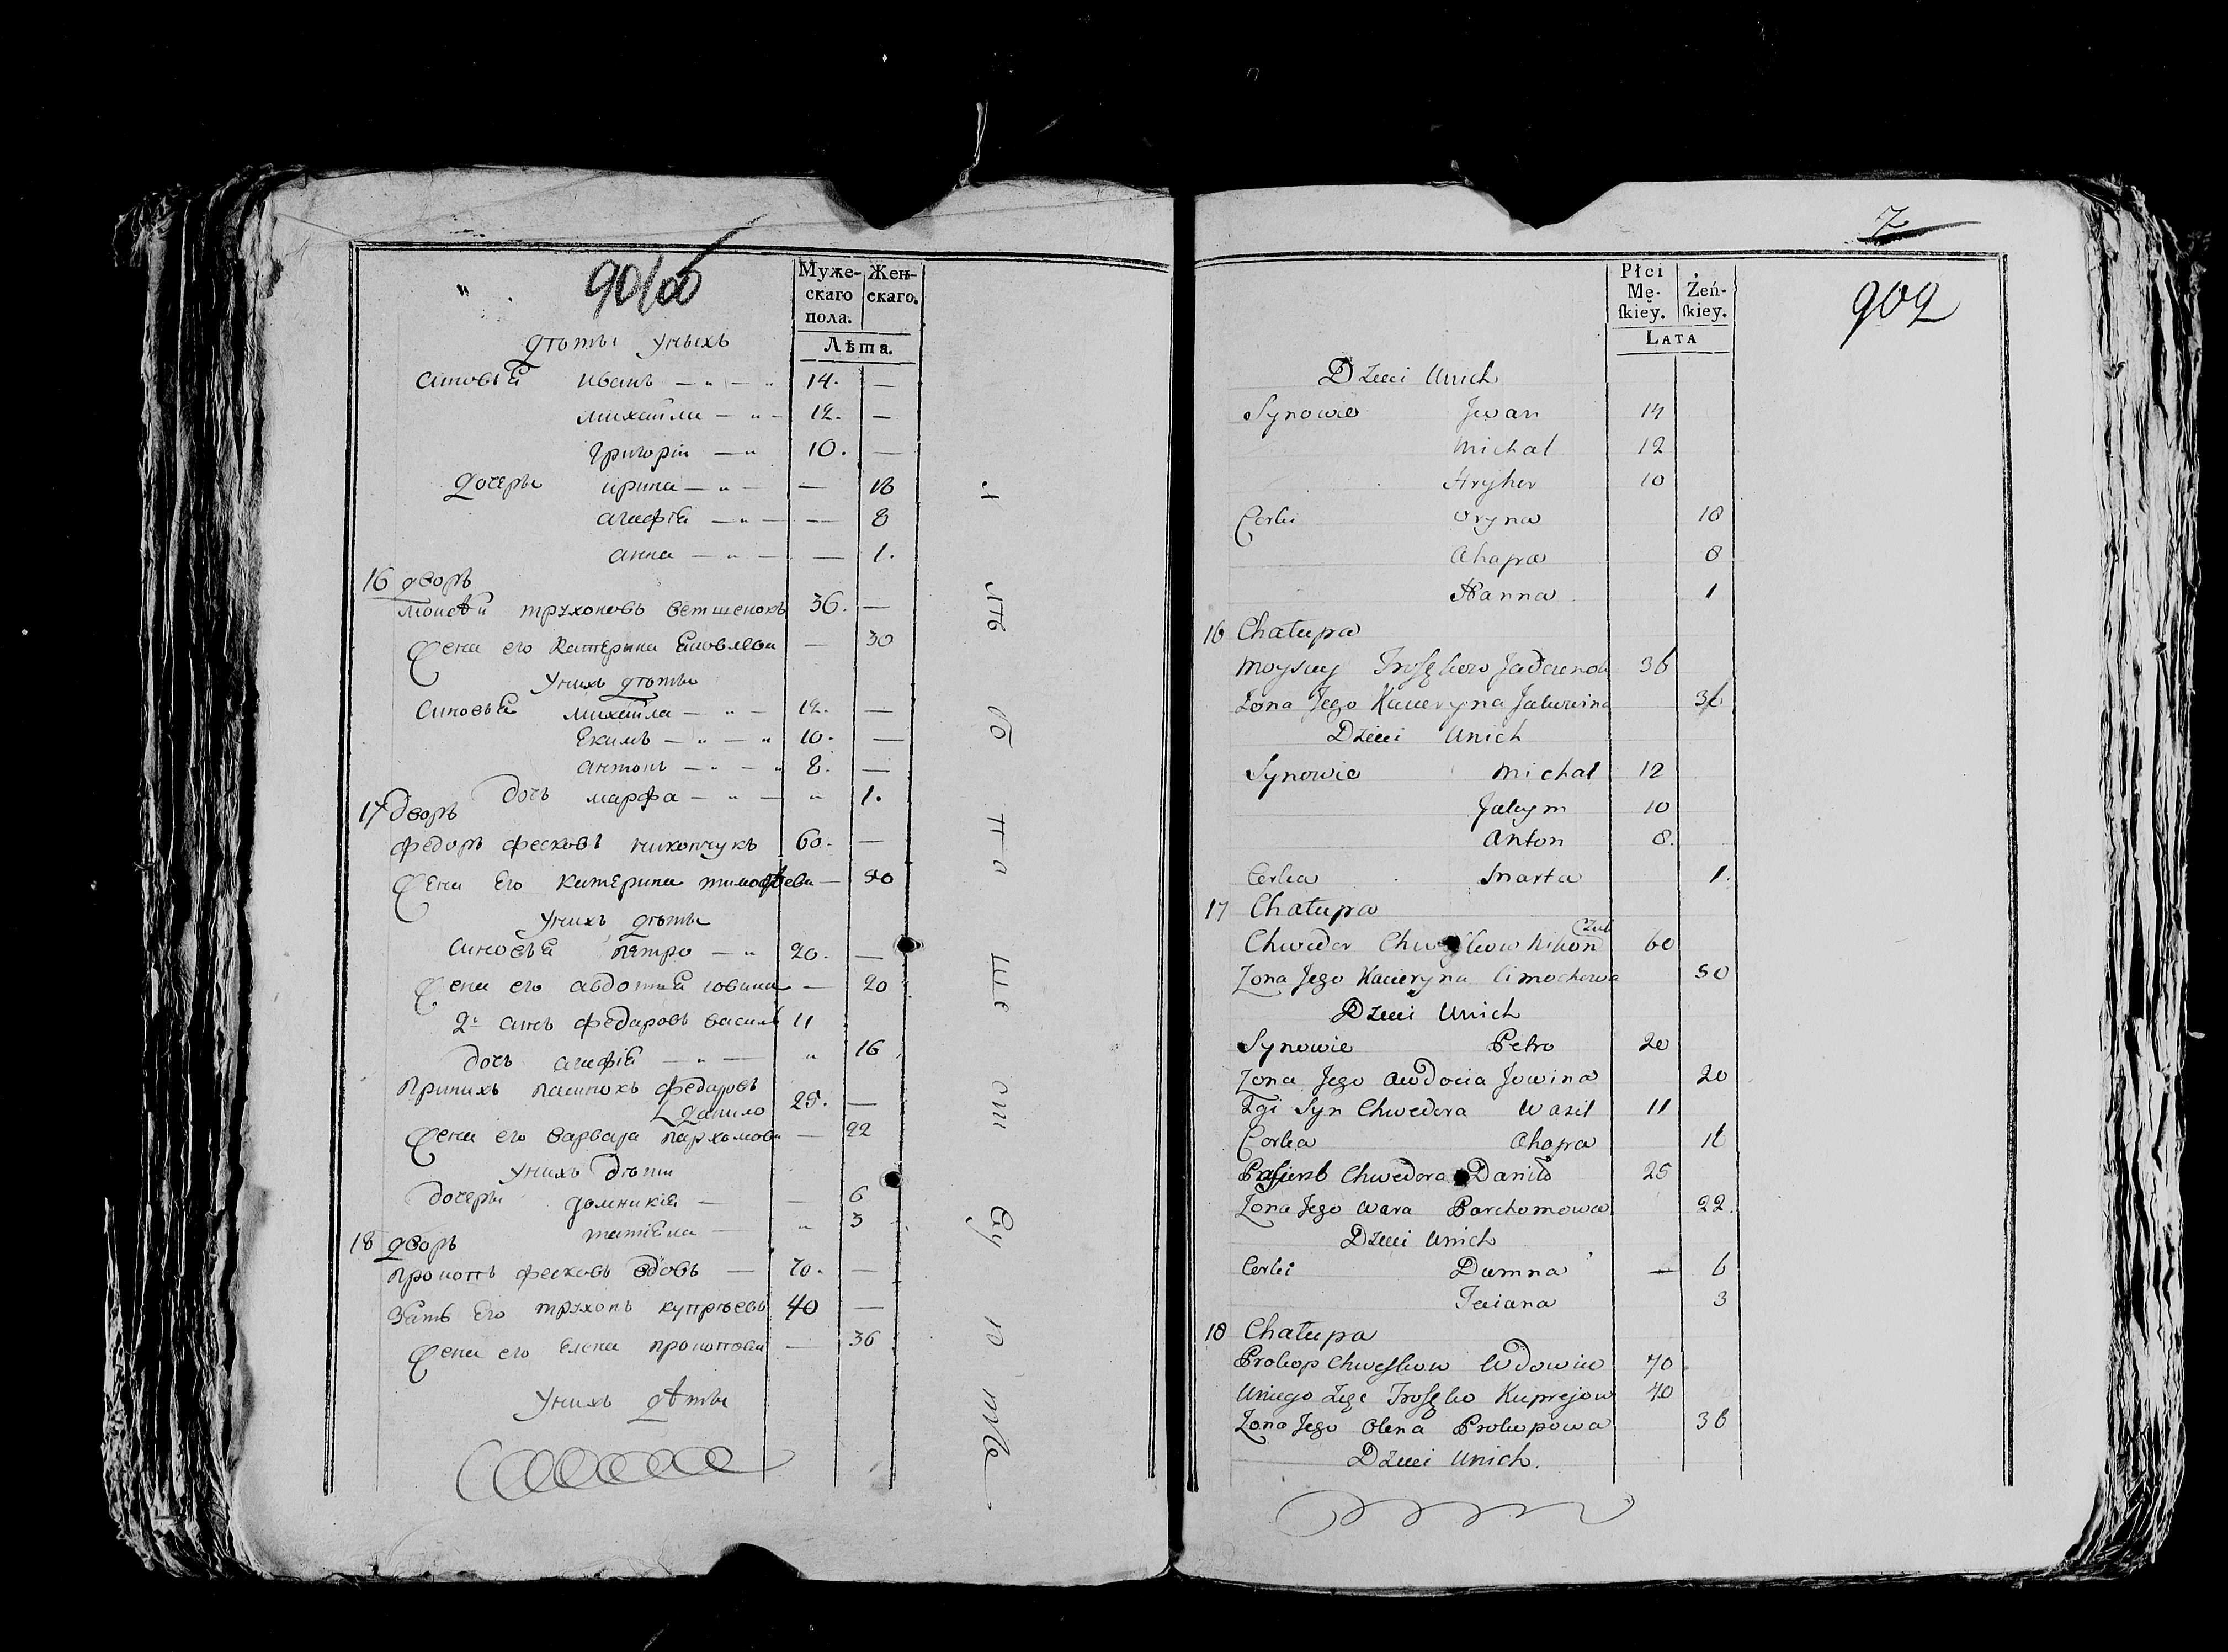 901об
Муже-
скаго
пола.
Жен-
скаго.
Лѣта.
дѣти у ныхъ
синовья иванъ — 14. —
михайла — 12. —
григорій — 10. —
дочеры ирина — — 18
агафія — — 8
анна — — 1.
16 дворъ
Моисѣй трухоновъ 36. —
жена его Катерина Яковлева — 30
у нихъ дѣти
синовья михайла — 12. —
Екимъ — 10. —
антонъ — 8. —
дочь марфа — 1.
17 дворъ
федоръ фесковъ никончукъ 60. —
жена Его катерина тимофѣева — 50
у нихъ дѣти
синовья петро — 20. —
жена его авдотия иовина — 20
2й синъ федаровъ василь 11
дочь агафія — 16
При нихъ пасинокъ федаровъ
данило 25. —
жена его варвара пархомова — 22
у нихъ дѣти
дочеры домникія — — 6
татіяна — 3
18 дворъ
прокопъ фесковъ вдовъ — 70. —
зять Его трухонъ купрѣевъ 40 —
жена его Елена прокопова — 36
у нихъ дѣти
7
902
Płci
Mę-
ſkiey.
Żeń-
ſkiey.
LATA
Dzieci Unich
Synowie Jwan 14
Michał 12
Hryher 10
Corki Oryna 18
Ahapa 8
Hanna 1
16 Chałupa
Moysiey 36
Zona Jego Kacieryna Jakowina 36
Dzieci Unich
Synowie Michał 12
Jakym 10
Anton 8.
Corka Marta 1.
17 Chałupa
czuk
Chwedor Chweſkow Nikon 60
Zona Jego Kacieryna Cimochowa 50
Dzieci Unich
Synowie Petro 20
Zona Jego Awdocia Jowina 20
2gi Syn Chwedora Wasil 11
Corka Ahapa 16
Paſierb Chwedora Daniło 25
Zona Jego Wara Parchomowa 22.
Dzieci Unich
Corki Dumna — 6
Taciana 3
18 Chałupa
Prokop Chweſkow Wdowiec 70
Uniego Zięć Kuprejow 40
Zona Jego Olena Prokopowa 36
Dzieci Unich.